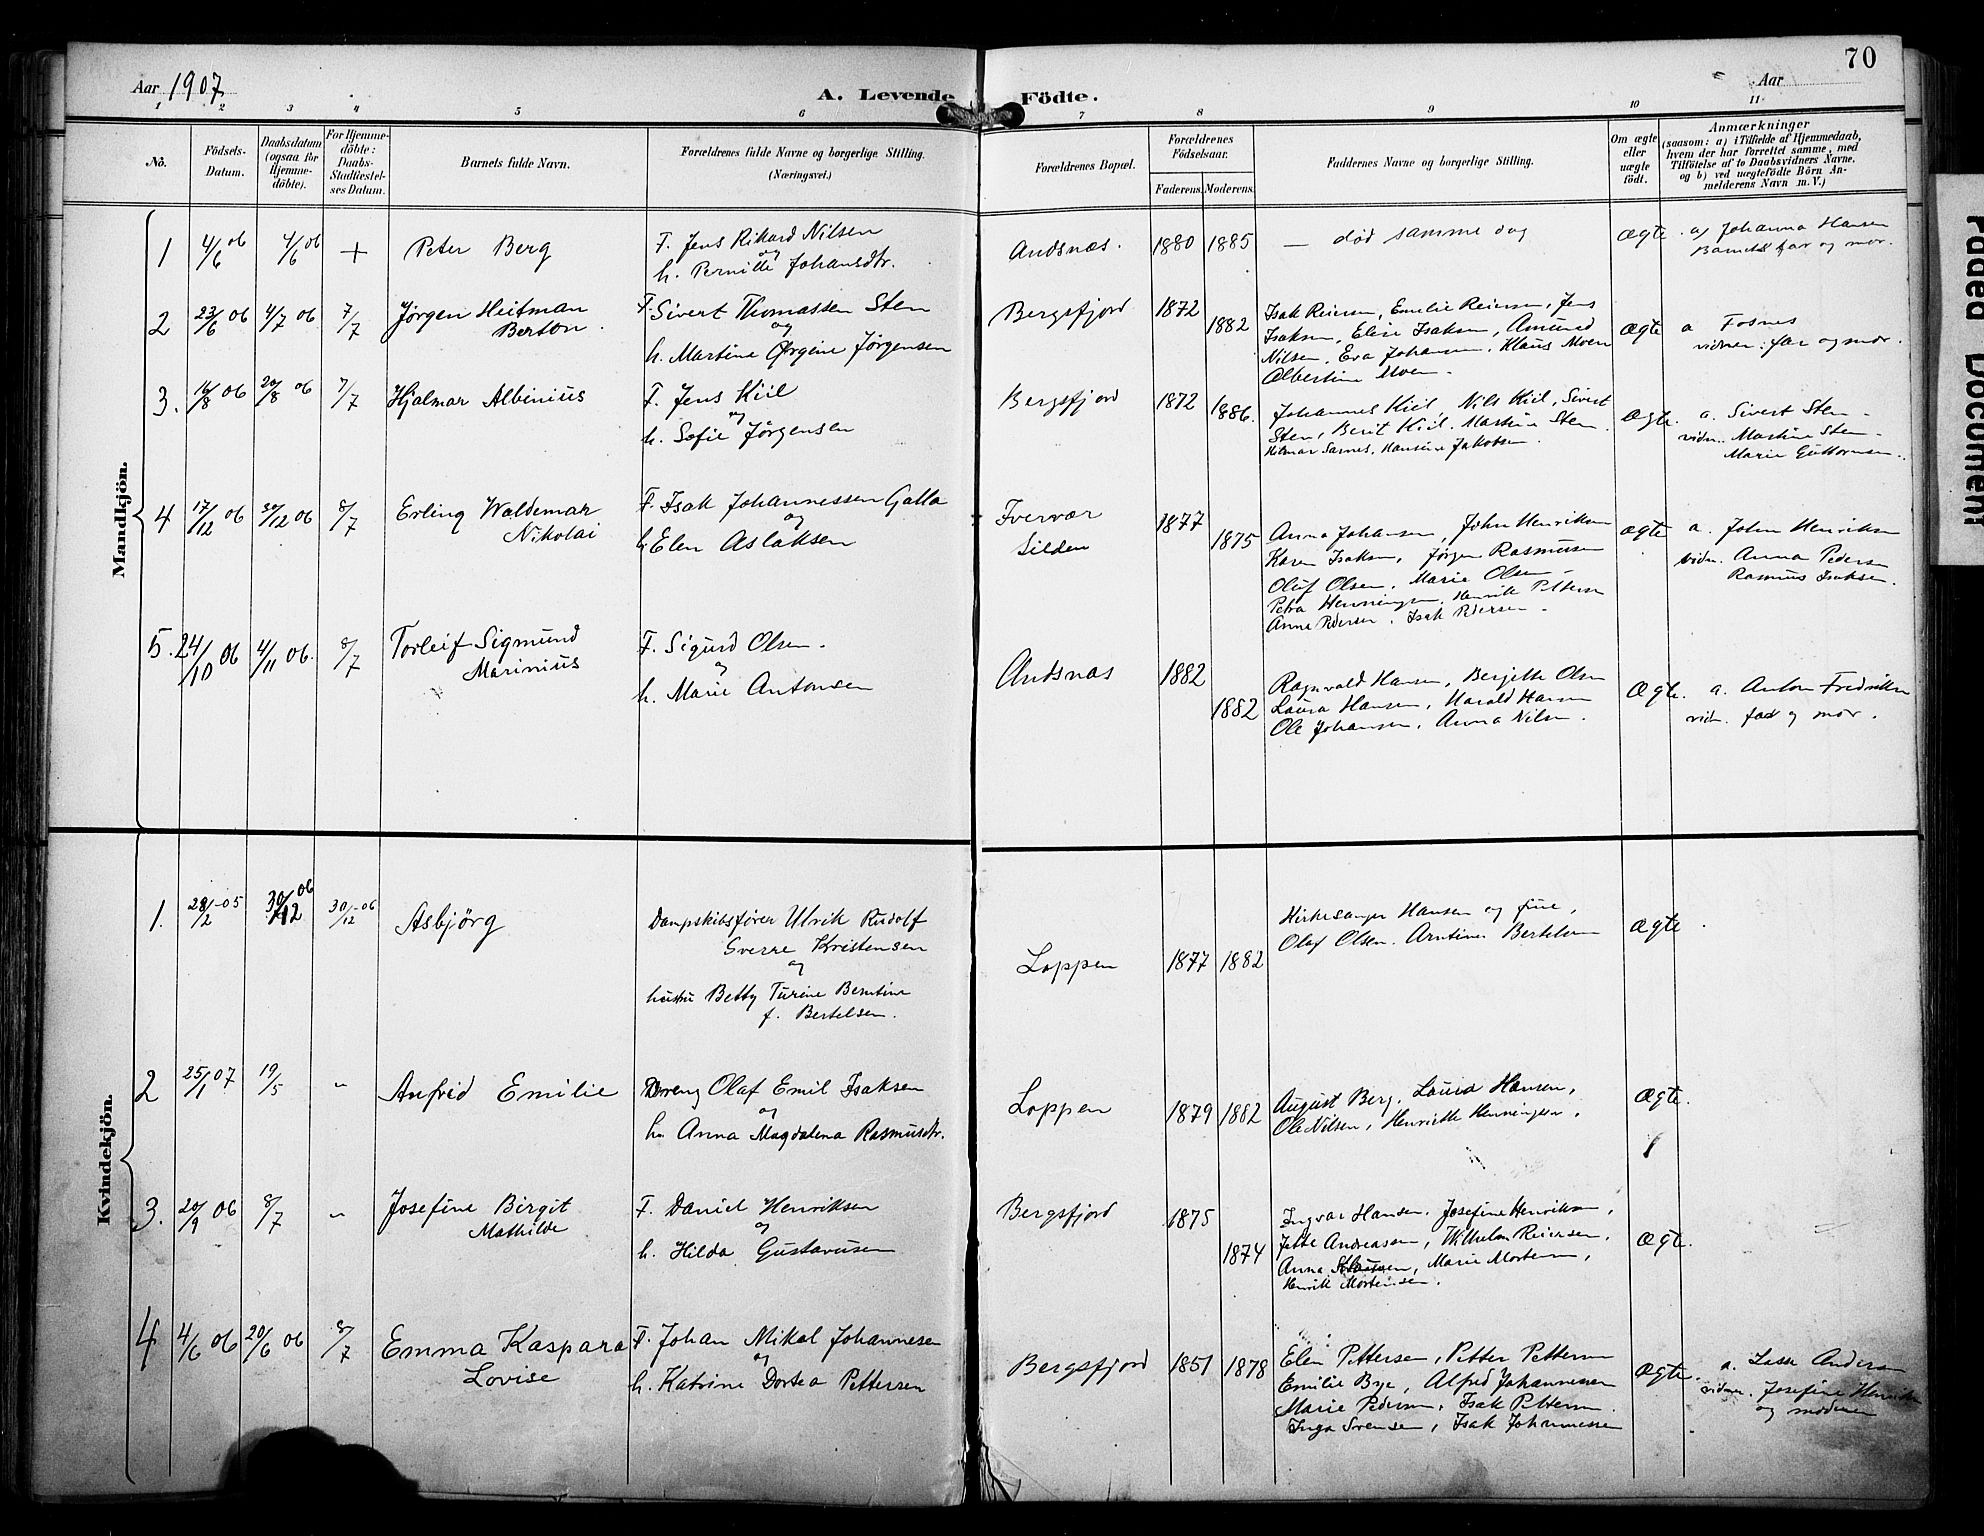 70
Aar 1907
A. Levende Födte.
Aar
1 2 3 4 5 6 7 8 9 10 11
No.
Födsels-
Datum.
Daabsdatum
(ogsaa for
Hjemme-
döbte).
For Hjemme-
döbte:
Daabs-
Stadfæstel-
ses Datum.
Barnets fulde Navn.
Forældrenes fulde Navne og borgerlige Stilling.
(Næringsvei.)
Forældrenes Bopæl.
Forældrenes
Födselsaar.
Faderens. Moderens.
Faddernes Navne og borgerlige Stilling.
Om ægte
eller
uægte
födt.
Anmærkninger
(saasom: a) i Tilfælde af Hjemmedaab,
hvem der har forrettet samme, med
Tilföielse af to Daabsvidners Navne.
og b) ved uægtefödte Börn An-
melderens Navn m. V.)
Mandkjön.
1 4/6 06 4/6 06 + Peter Berg
F. Jens Rikard Nilsen
og
h. Pernille Johansdtr.
Andsnæs. 1880 1885 — død samme dag
Ægte. a Johanna Hansen
Barnets far og mor.
2 23/6 06 4/7 06 7/7 Jørgen Heitman
Berton.
F. Sivert Thomassen Sten
og
h. Martine Ørgine Jørgensen
Bergsfjord 1872 1882
Isak Reiersen, Emilie Reiersen, Jens
Isaksen, Elise Isaksen, Amund
Nilsen, Eva Johansen, Klaus Moen
Albertine Moen.
Ægte a Fosnes
vidner: far og mor.
3. 16/8 06 20/8 06 7/7 Hjalmar Albinius
F. Jens Kiil
og
h. Sofie Jørgensen
Bergsfjord 1872 1886.
Johannes Kiil, Nils Kiil, Sivert
Sten, Berit Kiil. Martine Sten.
Hilmar Sarnes, Hansine Jakobsen.
Ægte. a. Sivert Sten
vidn. Martine Sten
Marie Guttormsen.
4 17/12 06 30/12 06 8/7 Erling Waldemar
Nikolai
F. Isak Johannessen Galla
og
h. Elen Aslaksen
Ivervær
Silden
1877 1875
Anna Johansen, John Henriksen
Karen Isaksen, Jørgen Rasmussen
Oluf Olsen, Marie Olsen
Petra Henningsen, Henrik Pettersen
Anna Pedersen, Isak Pedersen.
Ægte a. John Henriksen
vidn. Anna Pedersen
Rasmus Isaksen.
5. 24/10 06 4/11 06. 8/7 Torleif Sigmund
Marinius
F. Sigurd Olsen.
og
h. Marie Antonsen
Andsnæs 1882 1882
Ragnvald Hansen, Bergitte Olsen
Laura Hansen, Harald Hansen
Ole Johansen, Anna Nilsen.
Ægte. a. Anton Fredriksen
vidn. far og mor.
Kvindekjön.
1. 28/2-05 30/12 06 30/12-06 Asbjörg
Dampskibsfører Ulrik Rudolf
Sverre Kristensen
og
hustru Betty Turine Berntine
f. Bertelsen.
Loppen 1877 1882
Kirkesanger Hansen og frue,
Olaf Olsen. Arntine Bertelsen
Ægte.
2 25/1 07 19/5 " Anfrid Emilie
Dreng Olaf Emil Isaksen
og
h. Anna Magdalena Rasmusdtr.
Loppen 1879 1882
August Berg, Laura Hansen,
Ole Nilsen, Henriette Henningsen.
Ægte.
3. 20/9 06 8/7 " Josefine Birgit
Mathilde
F. Daniel Henriksen
og
h. Hilda Gustavusen
Bergsfjord 1875 1874
Ingvar Hansen, Josefine Henriksen,
Jette Andreassen, Wilhelm Reiersen,
Anna, Marie Mortensen,
Henrik Mortensen.
Ægte.
4 4/6 06 20/6 06 8/7 Emma Kaspara
Lovise
F. Johan Mikal Johannesen
og
h. Katrine Dortea Pettersen
Bergsfjord 1851 1878
Elen Pettersen, Petter Pettersen
Emilie Bye, Alfred Johannessen
Marie Pedersen, Isak Pettersen.
Inga Sørensen, Isak Johannessen
Ægte. a. Lasse Andersen
vidner. Josefine Henriksen
og moderen
Faded Document